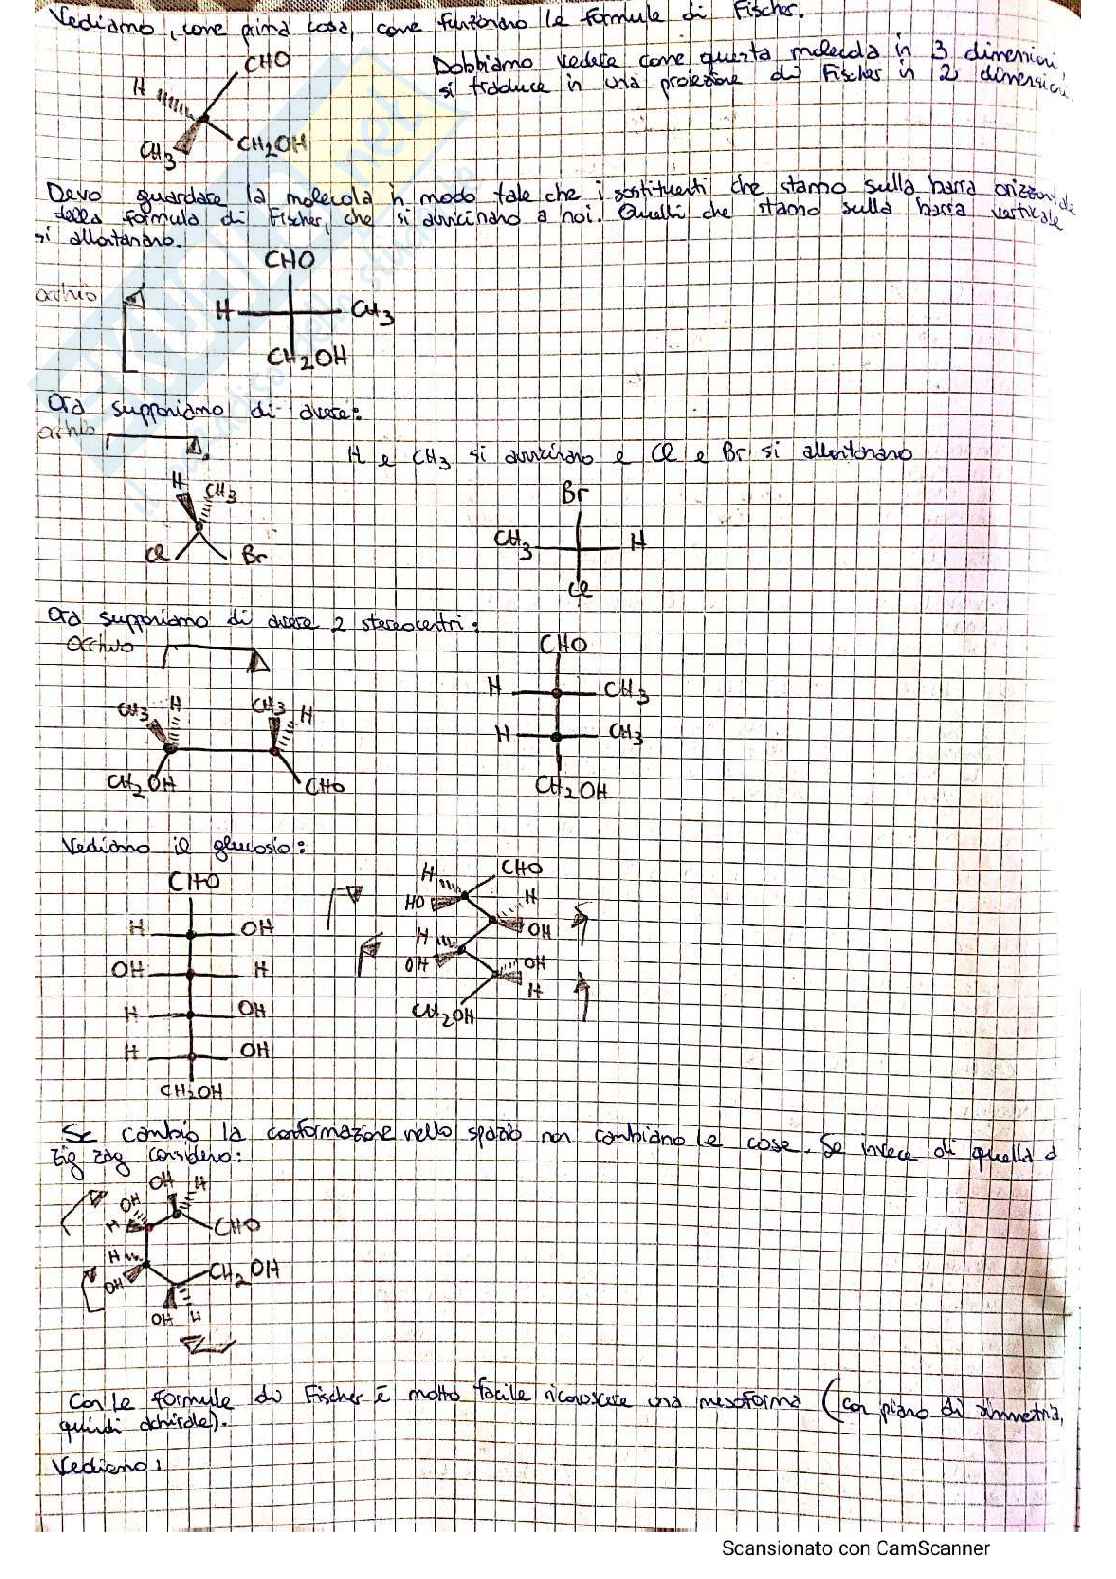 Vediamo, come prima cosa, come funzionano le formule di Fischer.
CHO
H
CH3
CH2OH
Dobbiamo vedere come questa molecola in 3 dimensioni
si traduce in una proiezione di Fischer in 2 dimensioni
Devo guardare la molecola in modo tale che i sostituenti che stanno sulla barra
della formula di Fischer, che si avvicinano a noi. Quelli che stanno sulla barra verticale
si allontanano.
CHO
occhio
H
CH3
CH2OH
Ora supponiamo di avere:
occhio
H e CH3 si avvicinano e Cl e Br si allontanano
H CH3
Cl Br
Br
CH3 H
Cl
Ora supponiamo di avere 2 stereocentri:
Occhio
CH3 H CH3 H
CH2OH CHO
CHO
H CH3
H CH3
CH2OH
Vediamo il glucosio:
CHO
H OH
OH H
H OH
H OH
CH2OH
H CHO
HO H
OH
H
OH OH
H
CH2OH
Se cambio la conformazione nello spazio non cambiano le cose. Se invece di quella a
zig zag considero:
OH H
OH
H CHO
H
OH CH2OH
OH H
Con le formule di Fischer è molto facile riconoscere una mesoforma (con piano di simmetria,
quindi achirale).
Vediamo:
Scansionato con CamScanner